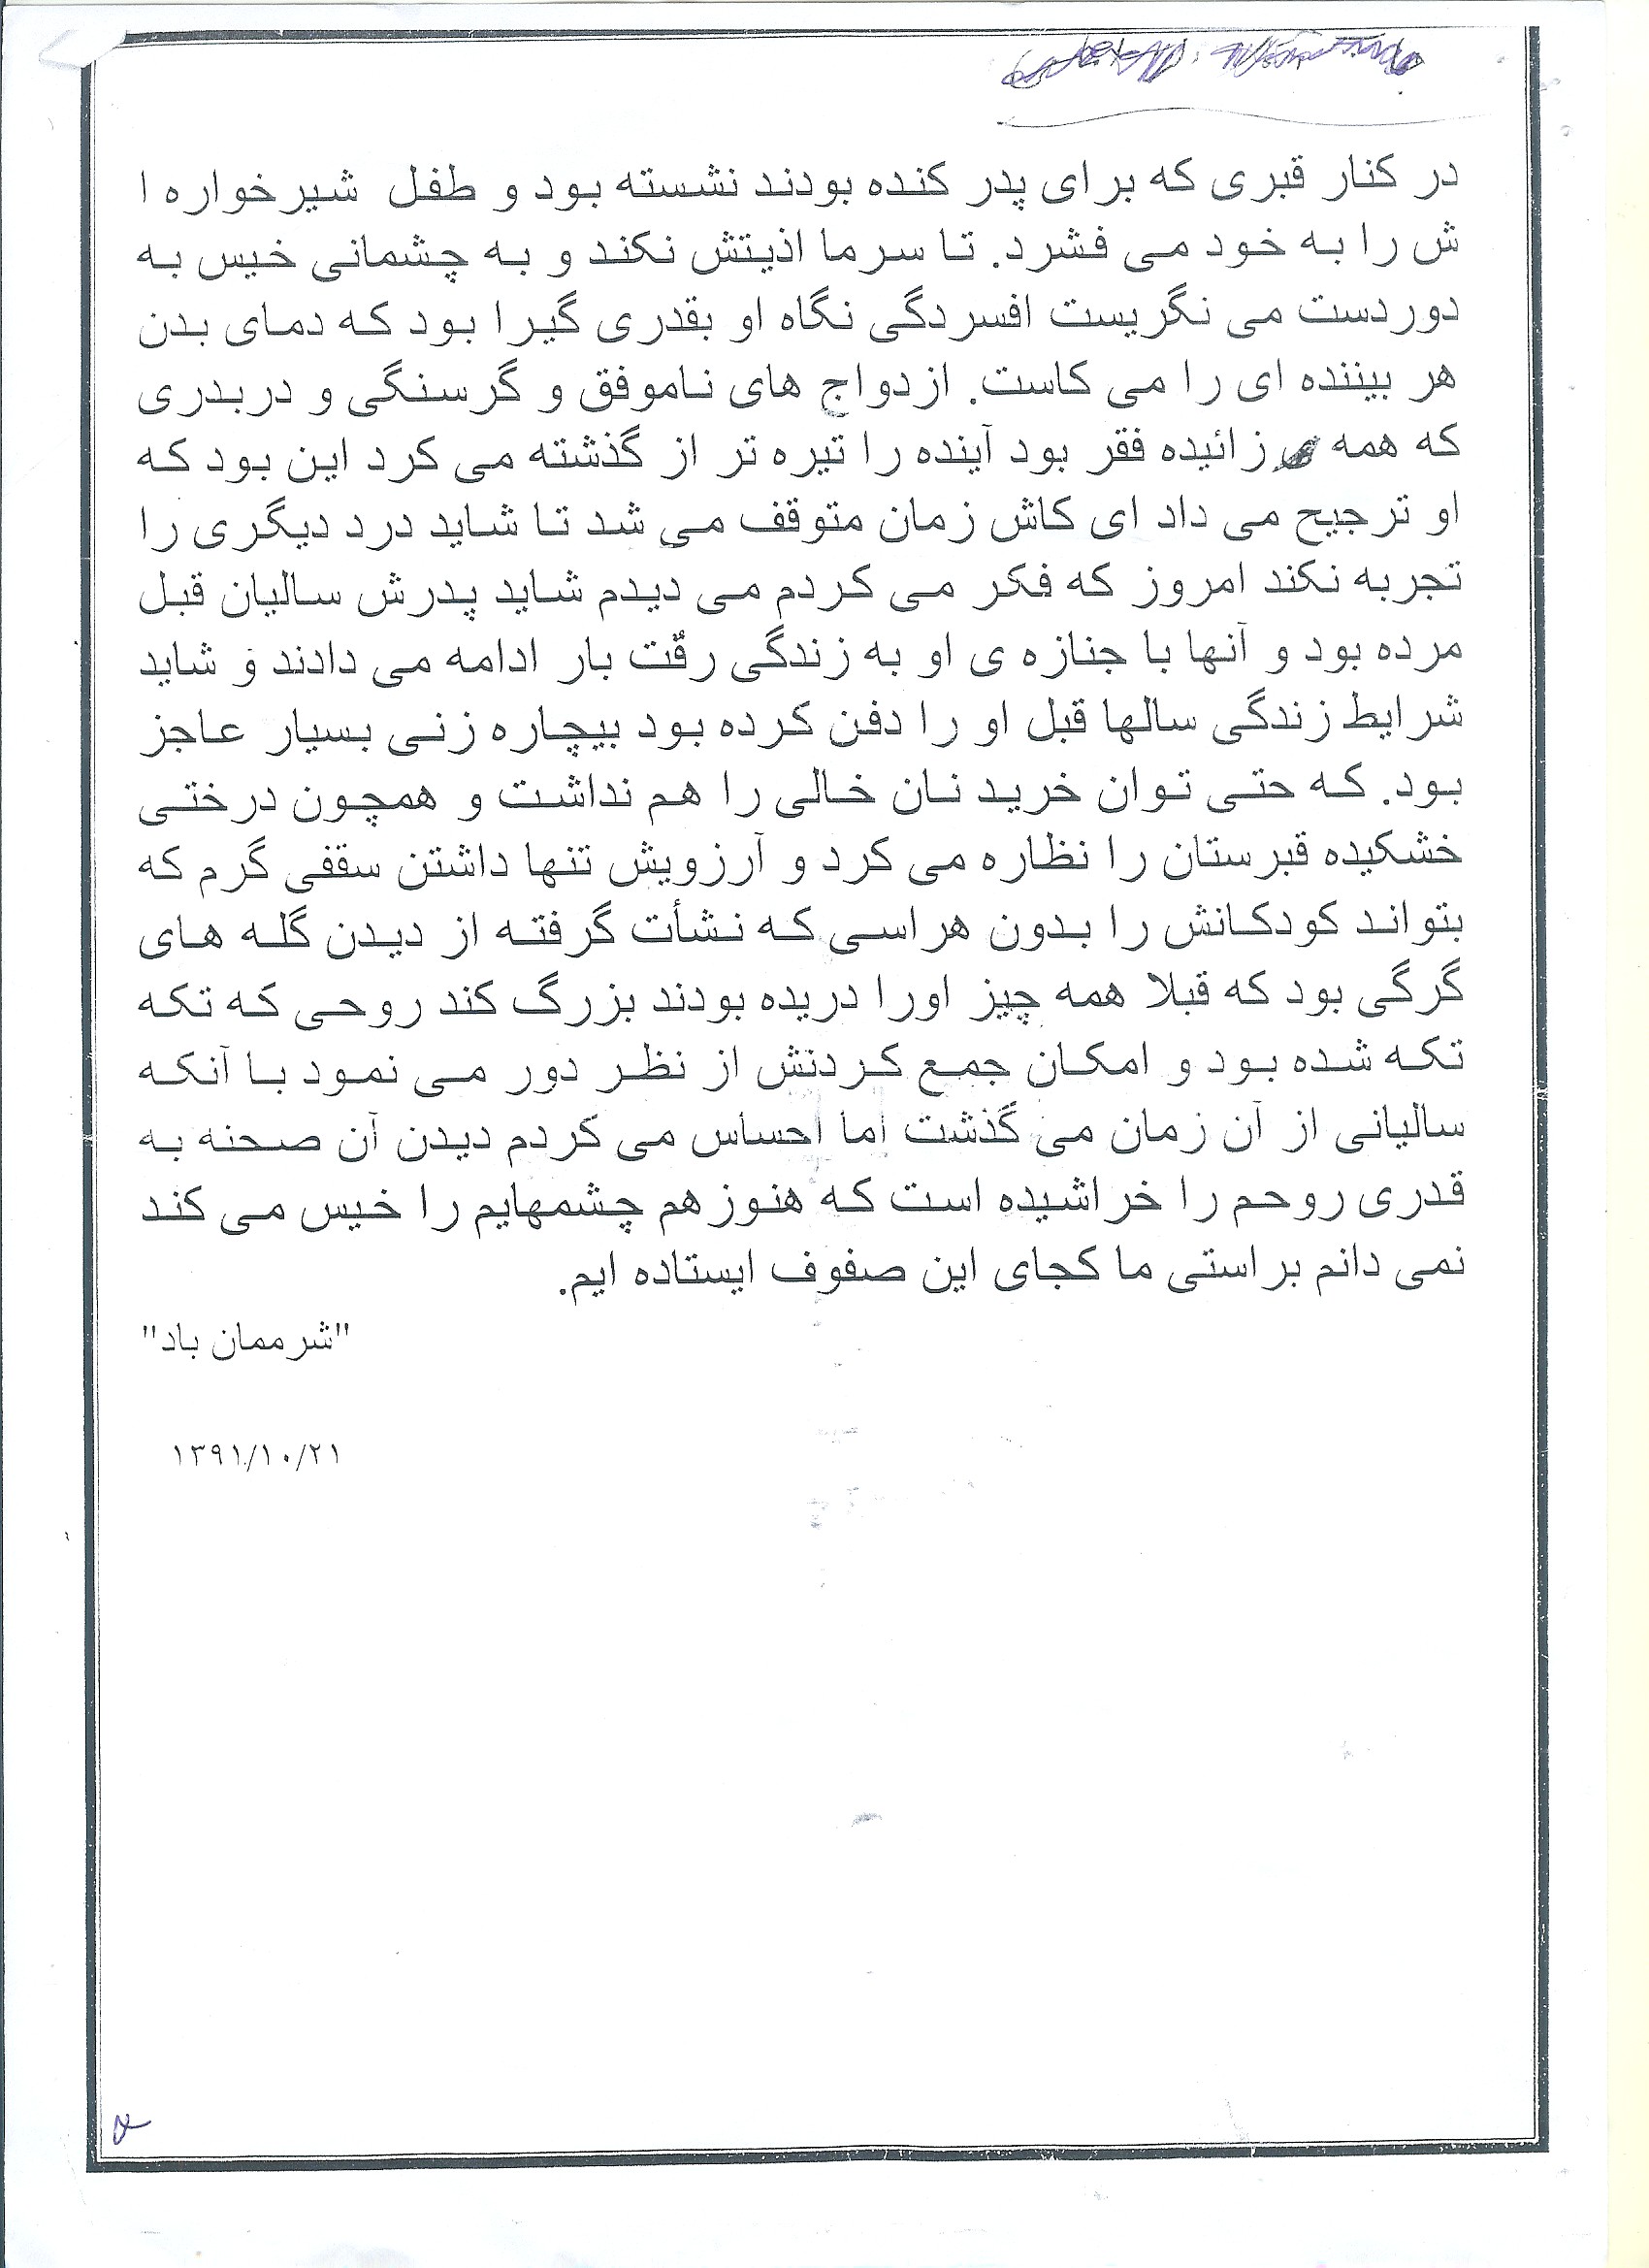 در کنار قبری که برای پدر کنده بودند نشسته بود و طفل شیرخواره ا
ش را به خود می فشرد. تا سرما اذیتش نکند و به چشمانی خیس به
دوردست می نگریست افسردگی نگاه او بقدری گیرا بود که دمای بدن
هر بیننده ای را می کاست. ازدواج های ناموفق و گرسنگی و دربدری
که همه زائیده فقر بود آینده را تیره تر از گذشته می کرد این بود که
او ترجیح می داد ای کاش زمان متوقف می شد تا شاید درد دیگری را
تجربه نکند امروز که فکر می کردم می دیدم شاید پدرش سالیان قبل
مرده بود و آنها با جنازه ی او به زندگی رقت بار ادامه می دادند و شاید
شرایط زندگی سالها قبل او را دفن کرده بود بیچاره زنی بسیار عاجز
بود. که حتی توان خرید نان خالی را هم نداشت و همچون درختی
خشکیده قبرستان را نظاره می کرد و آرزویش تنها داشتن سقفی گرم که
بتواند کودکانش را بدون هراسی که نشأت گرفته از دیدن گله های
گرگی بود که قبلا همه چیز اورا دریده بودند بزرگ کند روحی که تکه
تکه شده بود و امکان جمع کردنش از نظر دور می نمود با آنکه
سالیانی از آن زمان می گذشت اما احساس می کردم دیدن آن صحنه به
قدری روحم را خراشیده است که هنوز هم چشمهایم را خیس می کند
نمی دانم براستی ما کجای این صفوف ایستاده ایم.
"شرممان باد"
۱۳۹۱/۱۰/۲۱